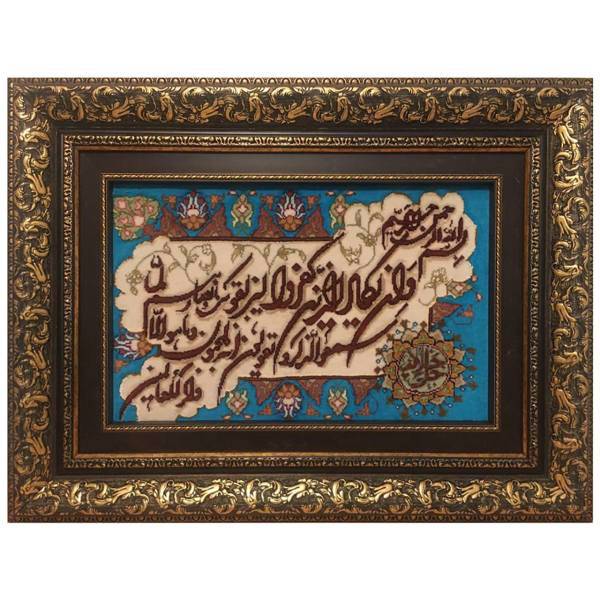 بسم الله الرحمن الرحیم
وان یکاد الذین کفروا لیزلقونک بابصارهم
لما سمعوا الذکر و یقولون انه لمجنون وما هو الا
ذکر للعالمین